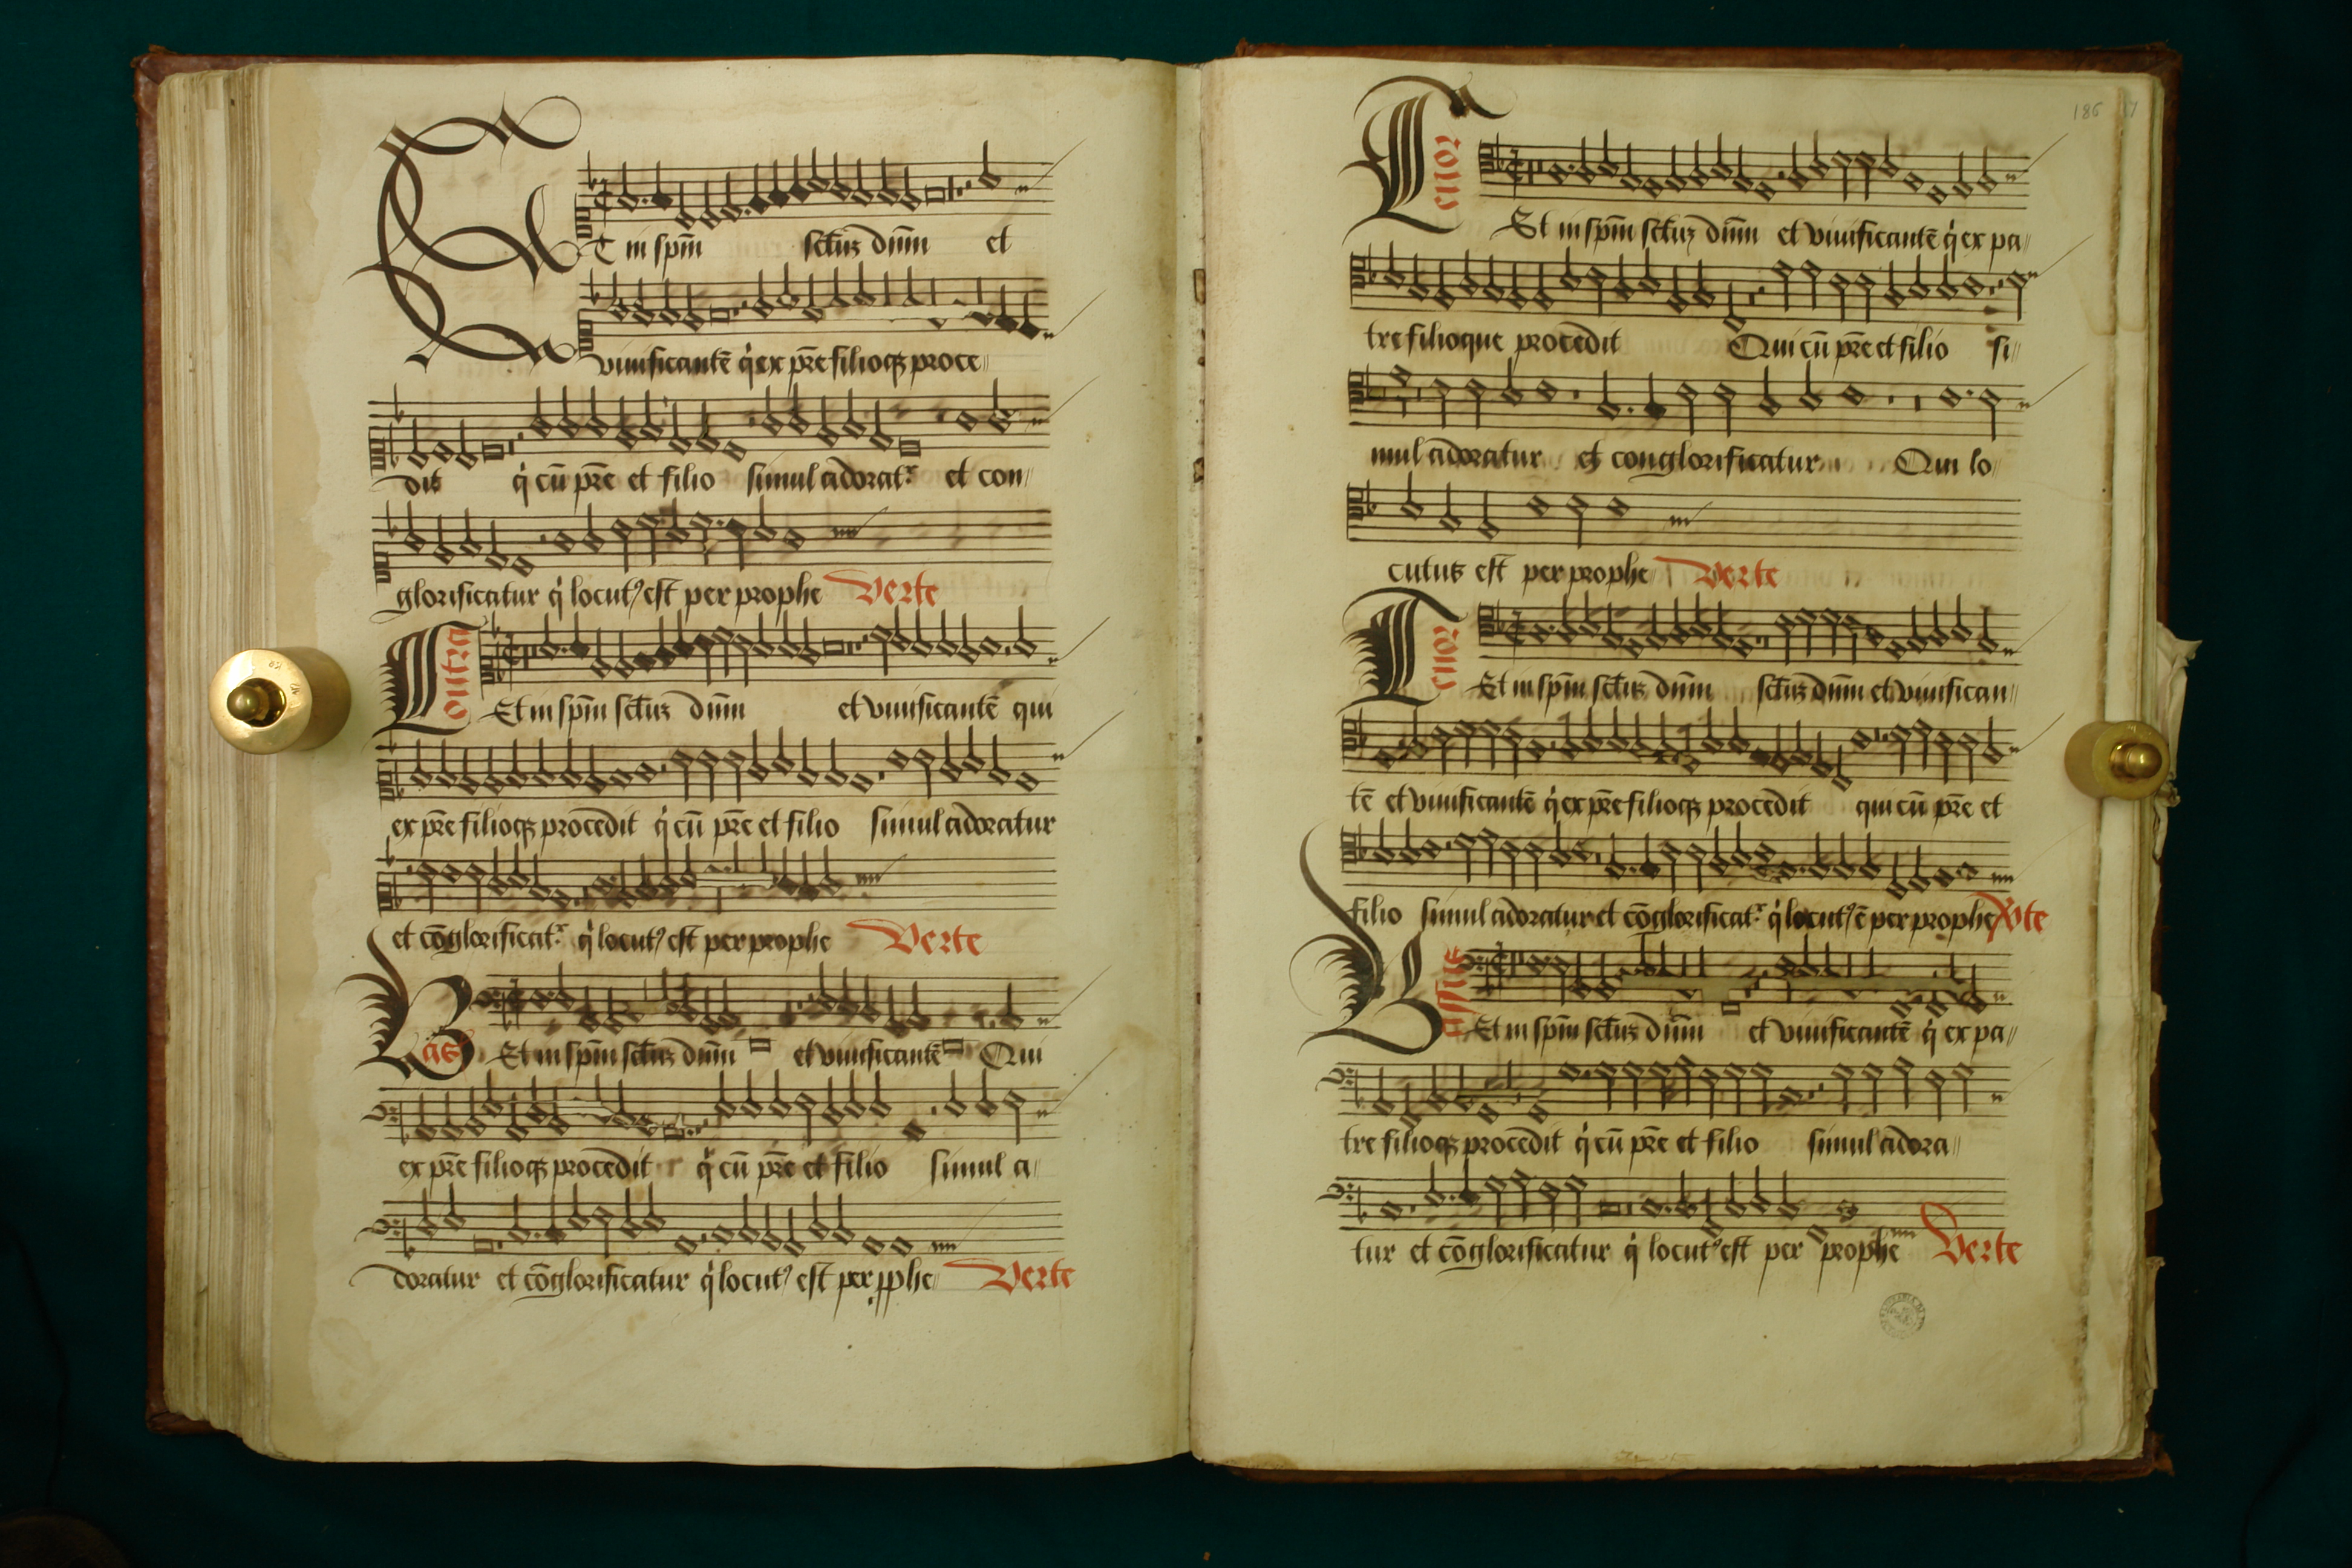 ET in spm̄ sctuꝫ dnm̄ et
viuificantē q̇ ex pr̄e filioqꝫ proce
dit q̇ cū pr̄e et filio simul adorat᷑ et con
glorificatur q̇ locutꝰ est per prophe Verte
Contra
Et in spm̄ sctuꝫ dnm̄ et viuificantē qui
ex pr̄e filioqꝫ procedit q̇ cū pr̄e et filio simul adoratur
et cōglorificat᷑ q̇ locutꝰ est per prophe Verte
Bas
Et in spm̄ sctuꝫ dnm̄ et viuificantē Qui
ex pr̄e filioqꝫ procedit q̇ cū pr̄e et filio simul a
doratur et cōglorificatur q̇ locutꝰ est per pphe Verte
186
Tenor
Et in spm̄ sctuꝫ dnm̄ et viuificantē q̇ ex pa
tre filioque procedit Qui cū pr̄e et filio si
mul adoratur et conglorificatur Qui lo
cutus est per prophe Verte
Tenor
Et in spm̄ sctuꝫ dnm̄ sctuꝫ dnm̄ et viuifican
tē et viuificantē q̇ ex pr̄e filioqꝫ procedit qui cū pr̄e et
filio simul adoratur et cōglorificat᷑ q̇ locutꝰ ē per prophe Vte
Bassus
Et in spm̄ sctuꝫ dnm̄ et viuificantē q̇ ex pa
tre filioqꝫ procedit q̇ cū pr̄e et filio simul adora
tur et cōglorificatur q̇ locutꝰ est per prophe Verte